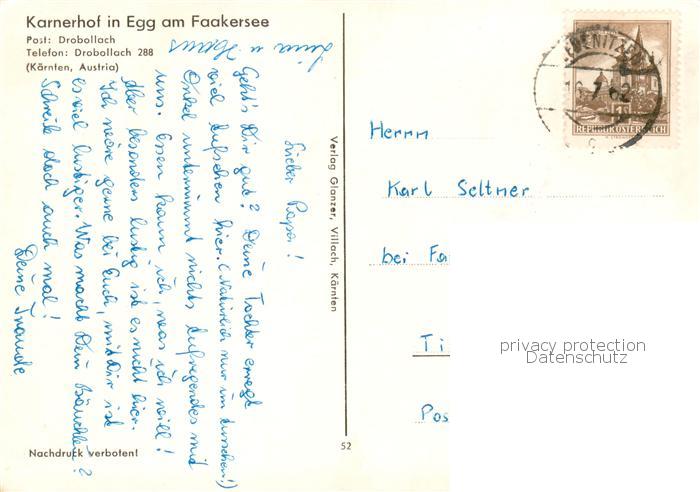 Karnerhof in Egg am Faakersee
Post: Drobollach
Telefon: Drobollach 288
(Kärnten, Austria)
Lieber Papa!
Geht's Dir gut? Deine Tochter erregt
viel Aufsehen hier. (Natürlich nur im
Onkel unternimmt nichts Aufregendes mit
uns. Essen kann ich, was ich will!
Aber besonders lustig ist es nicht hier.
Ich wäre gerne bei Euch, mit Dir ist
es viel lustiger. Was macht Dein Bäuchlein?
Schreib doch auch mal!
Deine Traude
u. Hans
Nachdruck verboten!
Verlag Glanzer, Villach, Kärnten
52
16 7 62
1S
REPUBLIK ÖSTERREICH
Herrn
Karl Seltner
bei Fa
Ti
Pos
privacy protection
Datenschutz